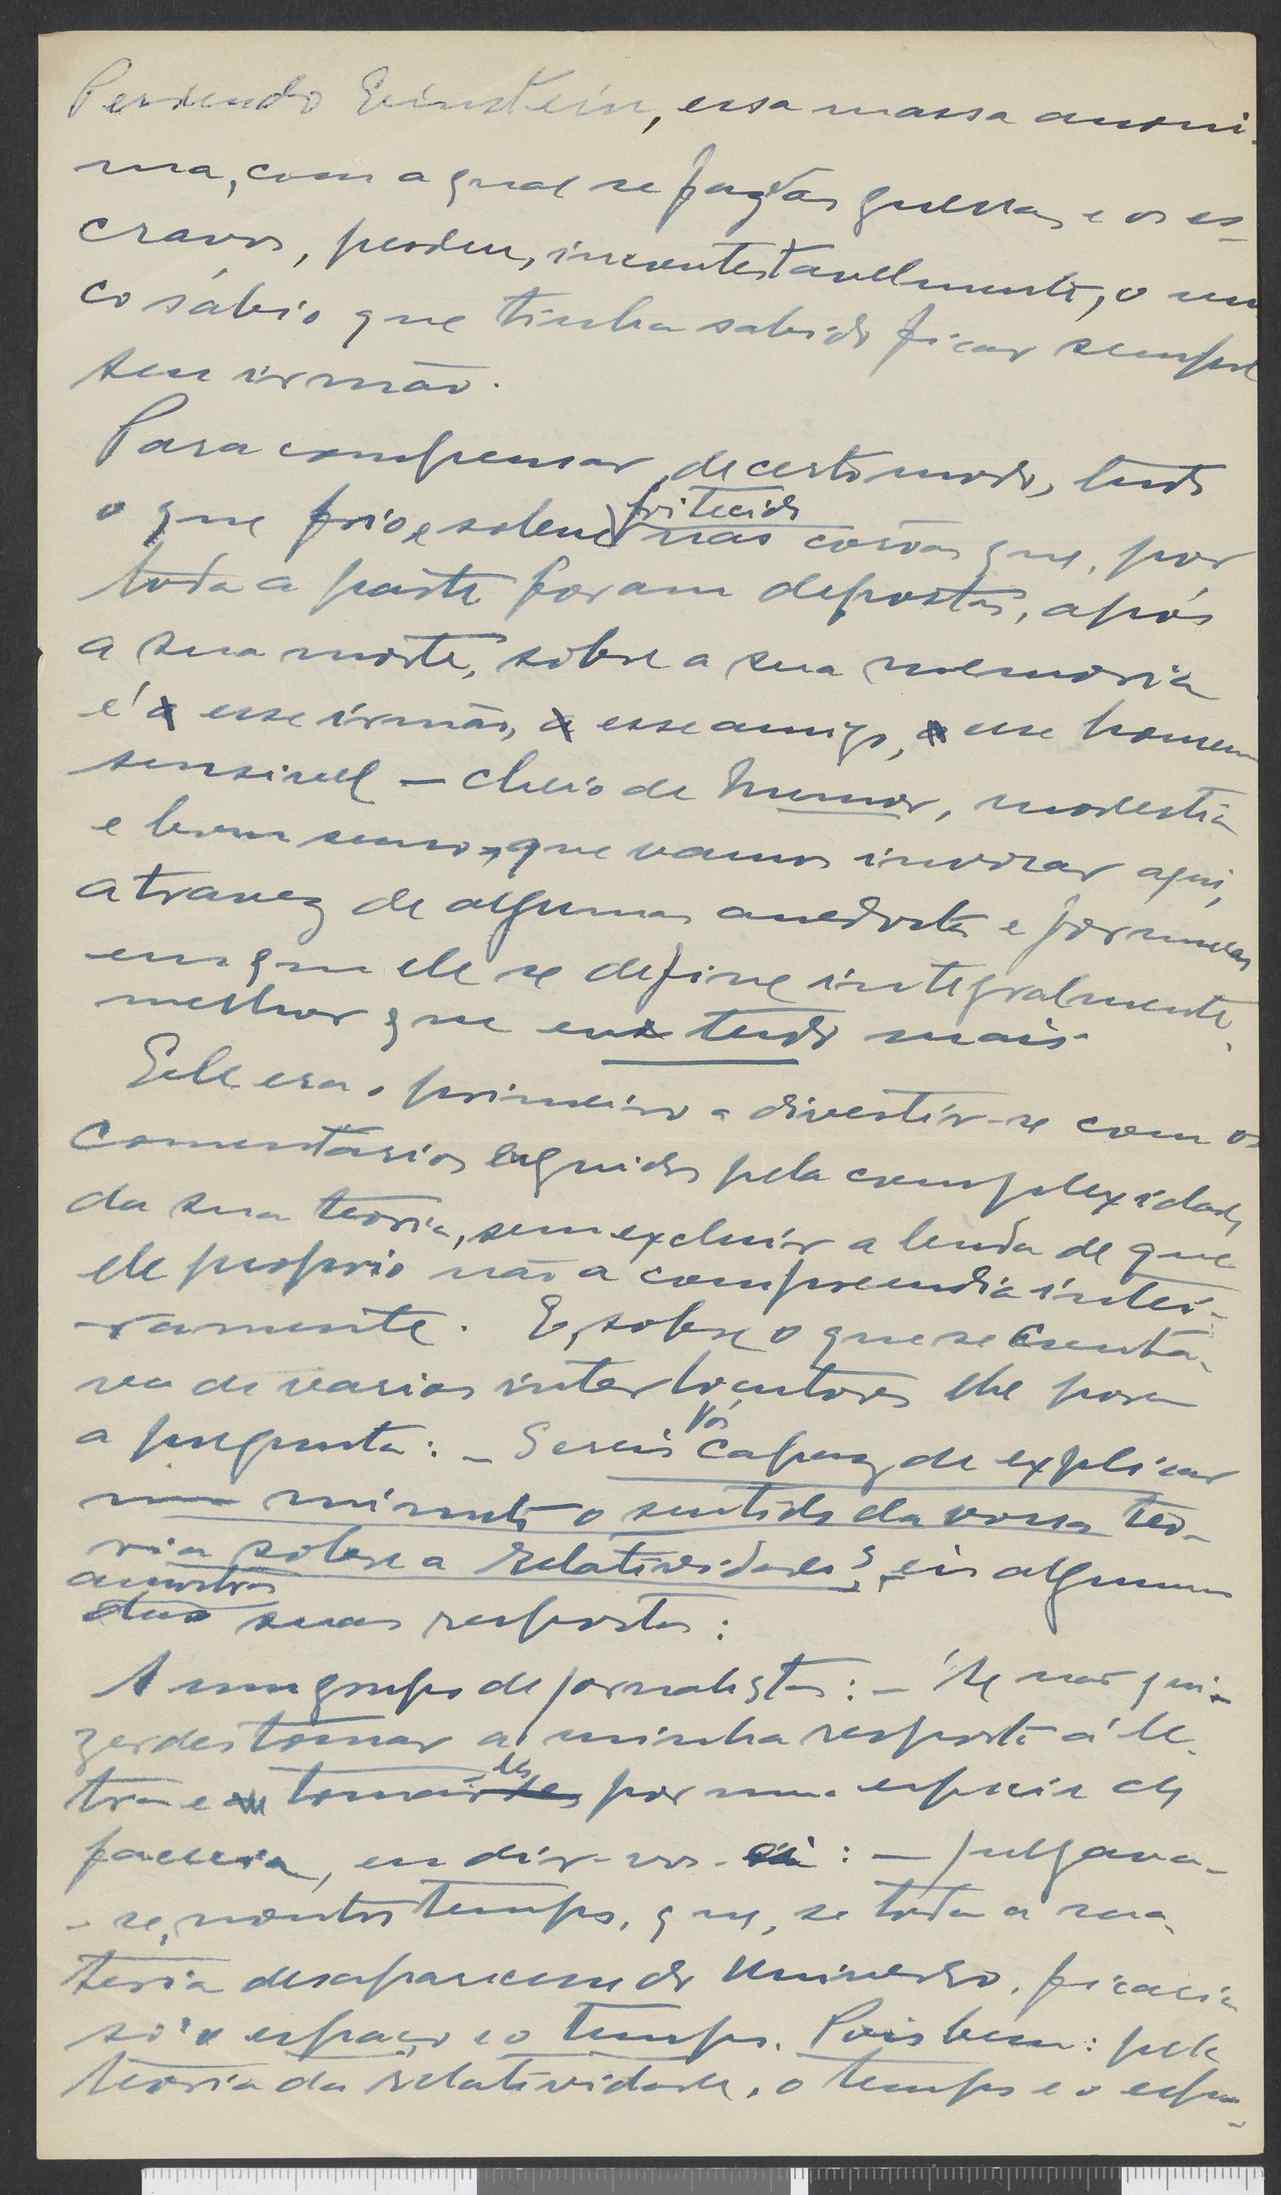 Perdendo Einstein, essa massa anoni-
ma, com a qual se fazem as guerras e os es-
cravos, perdeu, incontestavelmente, o uni
co sábio que tinha sabido ficar sempre
seu irmão.
Para compensar, de certo modo, tudo
o que frio e solene nas corôas que, por
toda a parte foram depostas, após
a sua morte, sôbre a sua memoria
é esse irmão, esse amigo, esse homem
sensivel — cheio de humor, modestia
e bom senso, que vamos invocar aqui,
atravez de algumas anedotas e formulas
em que ele se define integralmente,
melhor que em tudo mais.
Ele era o primeiro a divertir-se com os
comentarios erguidos pela complexidade
da sua teoria, sem excluir a lenda de que
ele proprio não a compreendia intei-
-ramente. E, sobre o que se
de varios interlocutores lhe pôr
a pergunta: — Sereis vós capaz de explicar
num minuto o sentido da vossa teo-
ria sôbre a relatividade?, eis algumas
amostras
das suas respostas:
A um grupo de jornalistas: — Se não qui-
zerdes tomar a minha resposta á le-
tra e tomai-la por uma especie de
facecia, eu dir-vos-ei: — Julgava-
-se, noutros tempos, que, se toda a ma-
teria desaparecesse do Universo, ficaria
só o espaço e o tempo. Pois bem: pela
teoria da relatividade, o tempo e o espa-